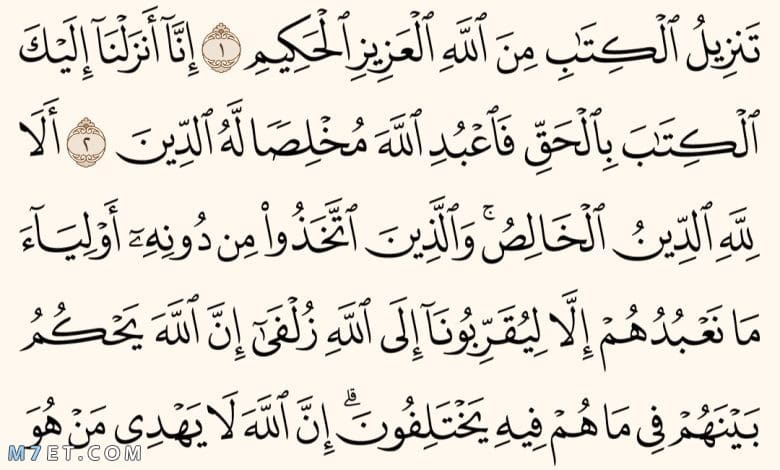 تَنزِيلُ ٱلْكِتَٰبِ مِنَ ٱللَّهِ ٱلْعَزِيزِ ٱلْحَكِيمِ ١ إِنَّآ أَنزَلْنَآ إِلَيْكَ
ٱلْكِتَٰبَ بِٱلْحَقِّ فَٱعْبُدِ ٱللَّهَ مُخْلِصًا لَّهُ ٱلدِّينَ ٢ أَلَا
لِلَّهِ ٱلدِّينُ ٱلْخَالِصُ ۚ وَٱلَّذِينَ ٱتَّخَذُوا۟ مِن دُونِهِۦٓ أَوْلِيَآءَ
مَا نَعْبُدُهُمْ إِلَّا لِيُقَرِّبُونَآ إِلَى ٱللَّهِ زُلْفَىٰٓ إِنَّ ٱللَّهَ يَحْكُمُ
بَيْنَهُمْ فِى مَا هُمْ فِيهِ يَخْتَلِفُونَ ۗ إِنَّ ٱللَّهَ لَا يَهْدِى مَنْ هُوَ
M7ET.COM